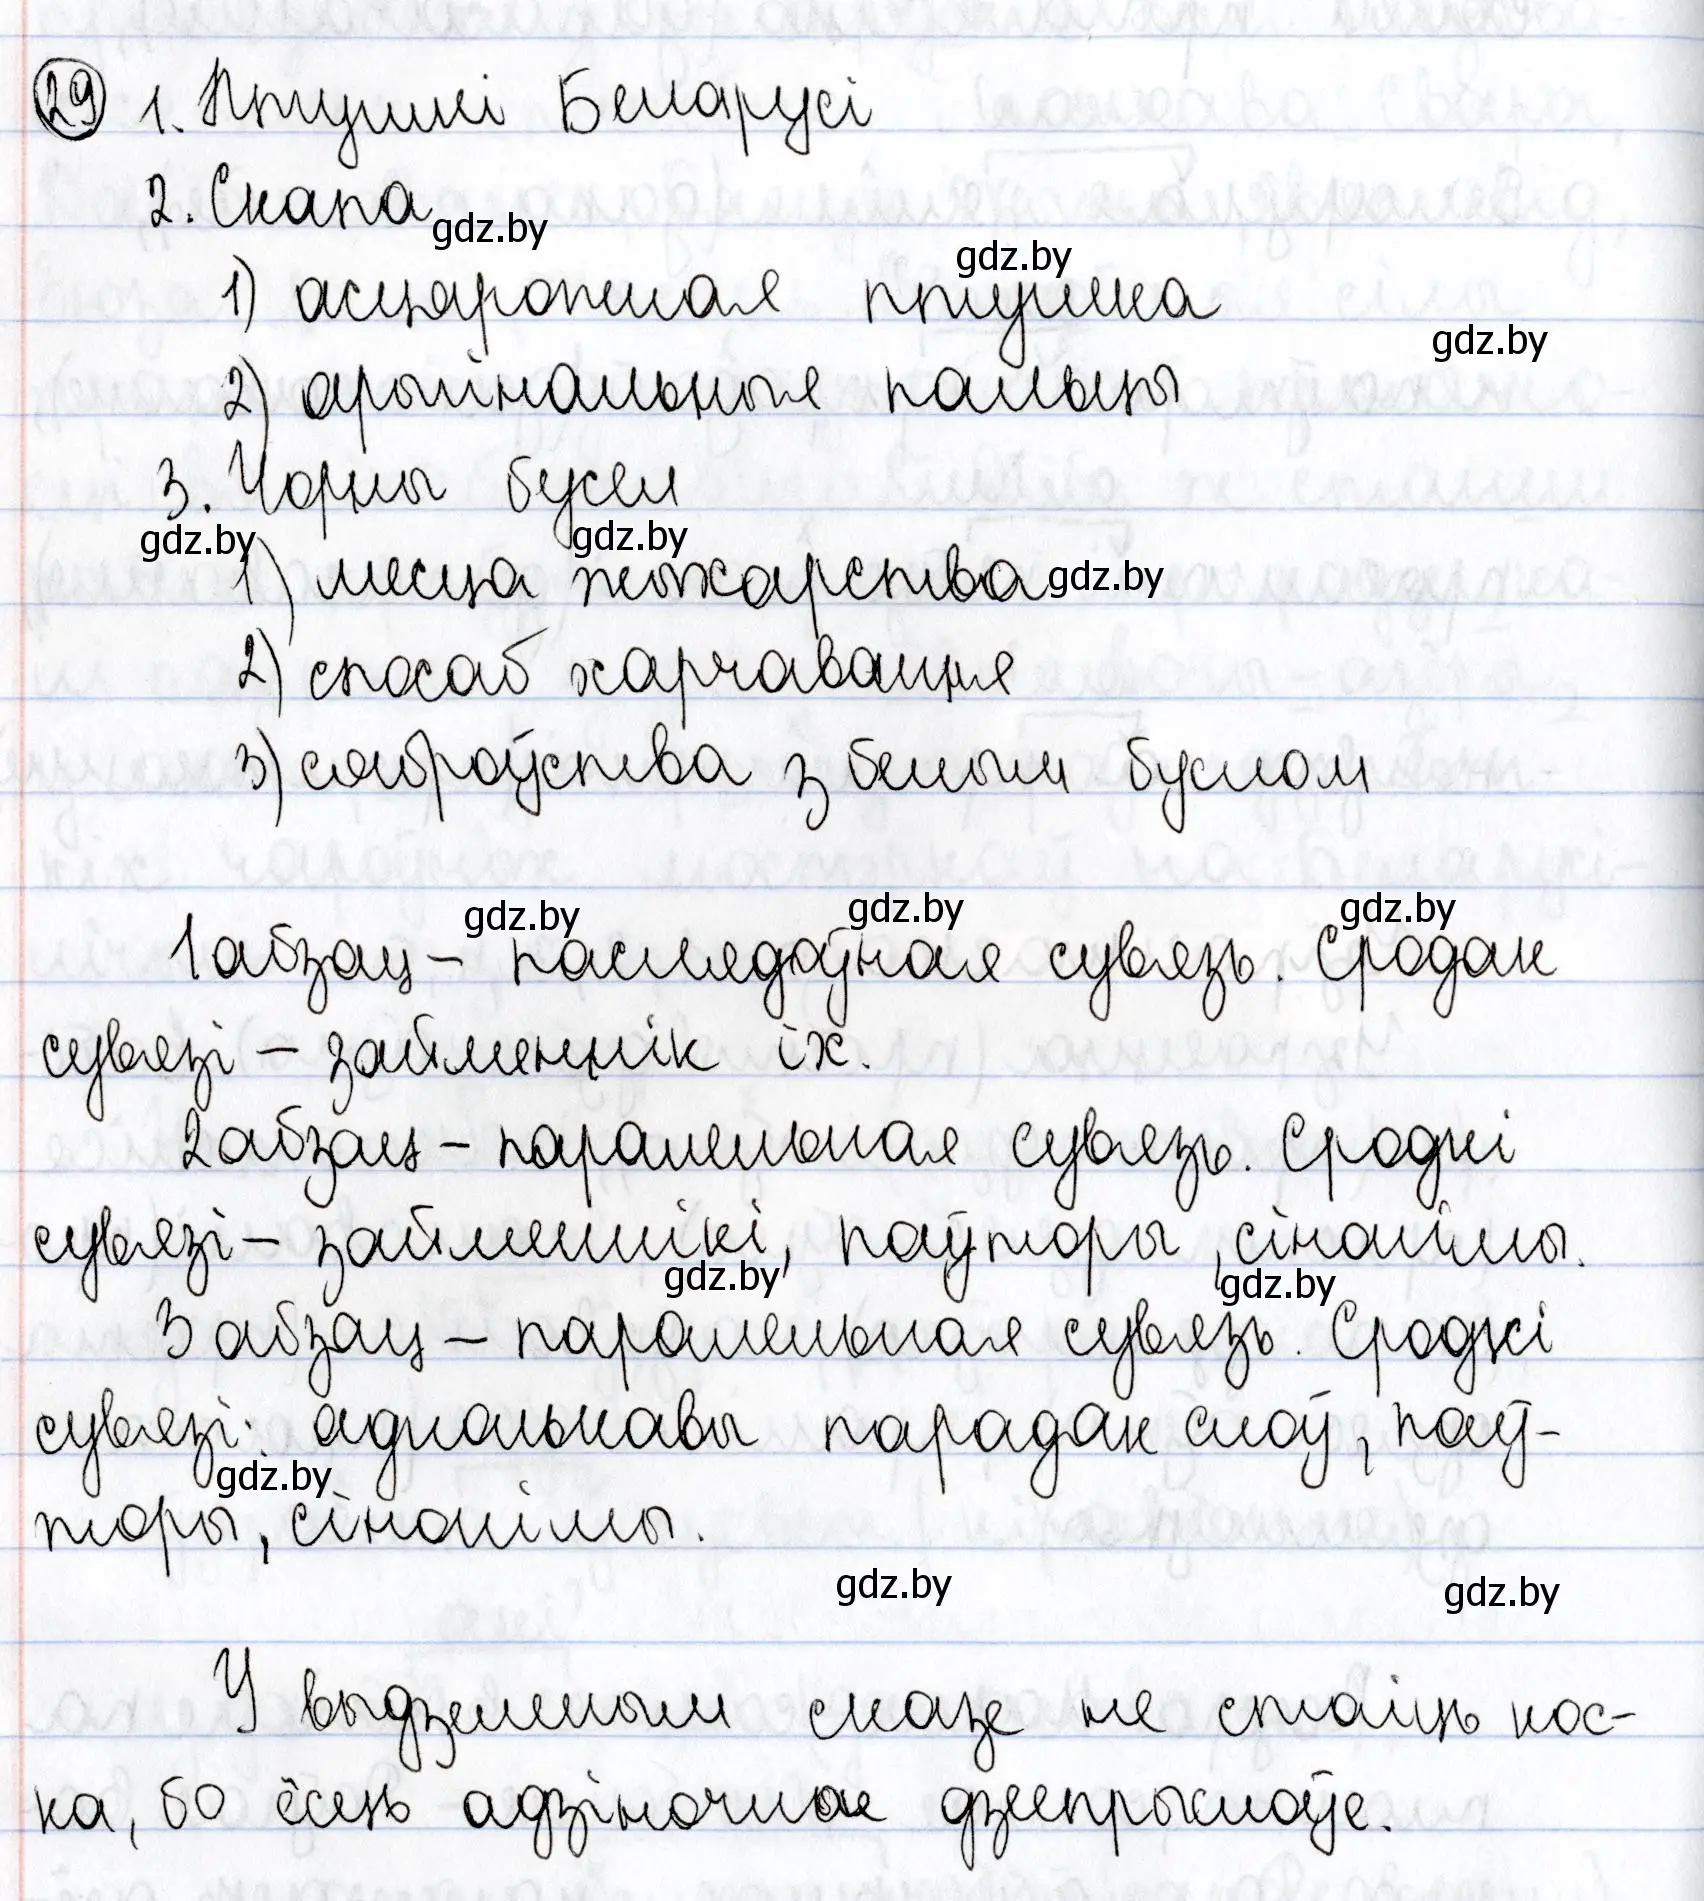 29 1. Птушкі Беларусі
2. Скапа
gdz.by
1) асцярожная птушка
gdz.by
gdz.by
2) арыгінальныя пальцы
3. Чорны бусел
gdz.by gdz.by
1) месца жыхарства gdz.by
2) спосаб харчавання
3) сяброўства з белым буслом
gdz.by gdz.by gdz.by
1 абзац – паслядоўная сувязь. Сродак
сувязі – займеннік іх.
2 абзац – паралельная сувязь. Сродкі
сувязі – займеннікі, паўторы, сінонімы.
gdz.by gdz.by
3 абзац – паралельная сувязь. Сродкі
сувязі: аднолькавы парадак слоў, паў-
gdz.by
торы, сінонімы.
gdz.by gdz.by
У выдзеленым сказе не стаіць кос-
ка, бо ёсць адзіночнае дзеепрыслоўе.